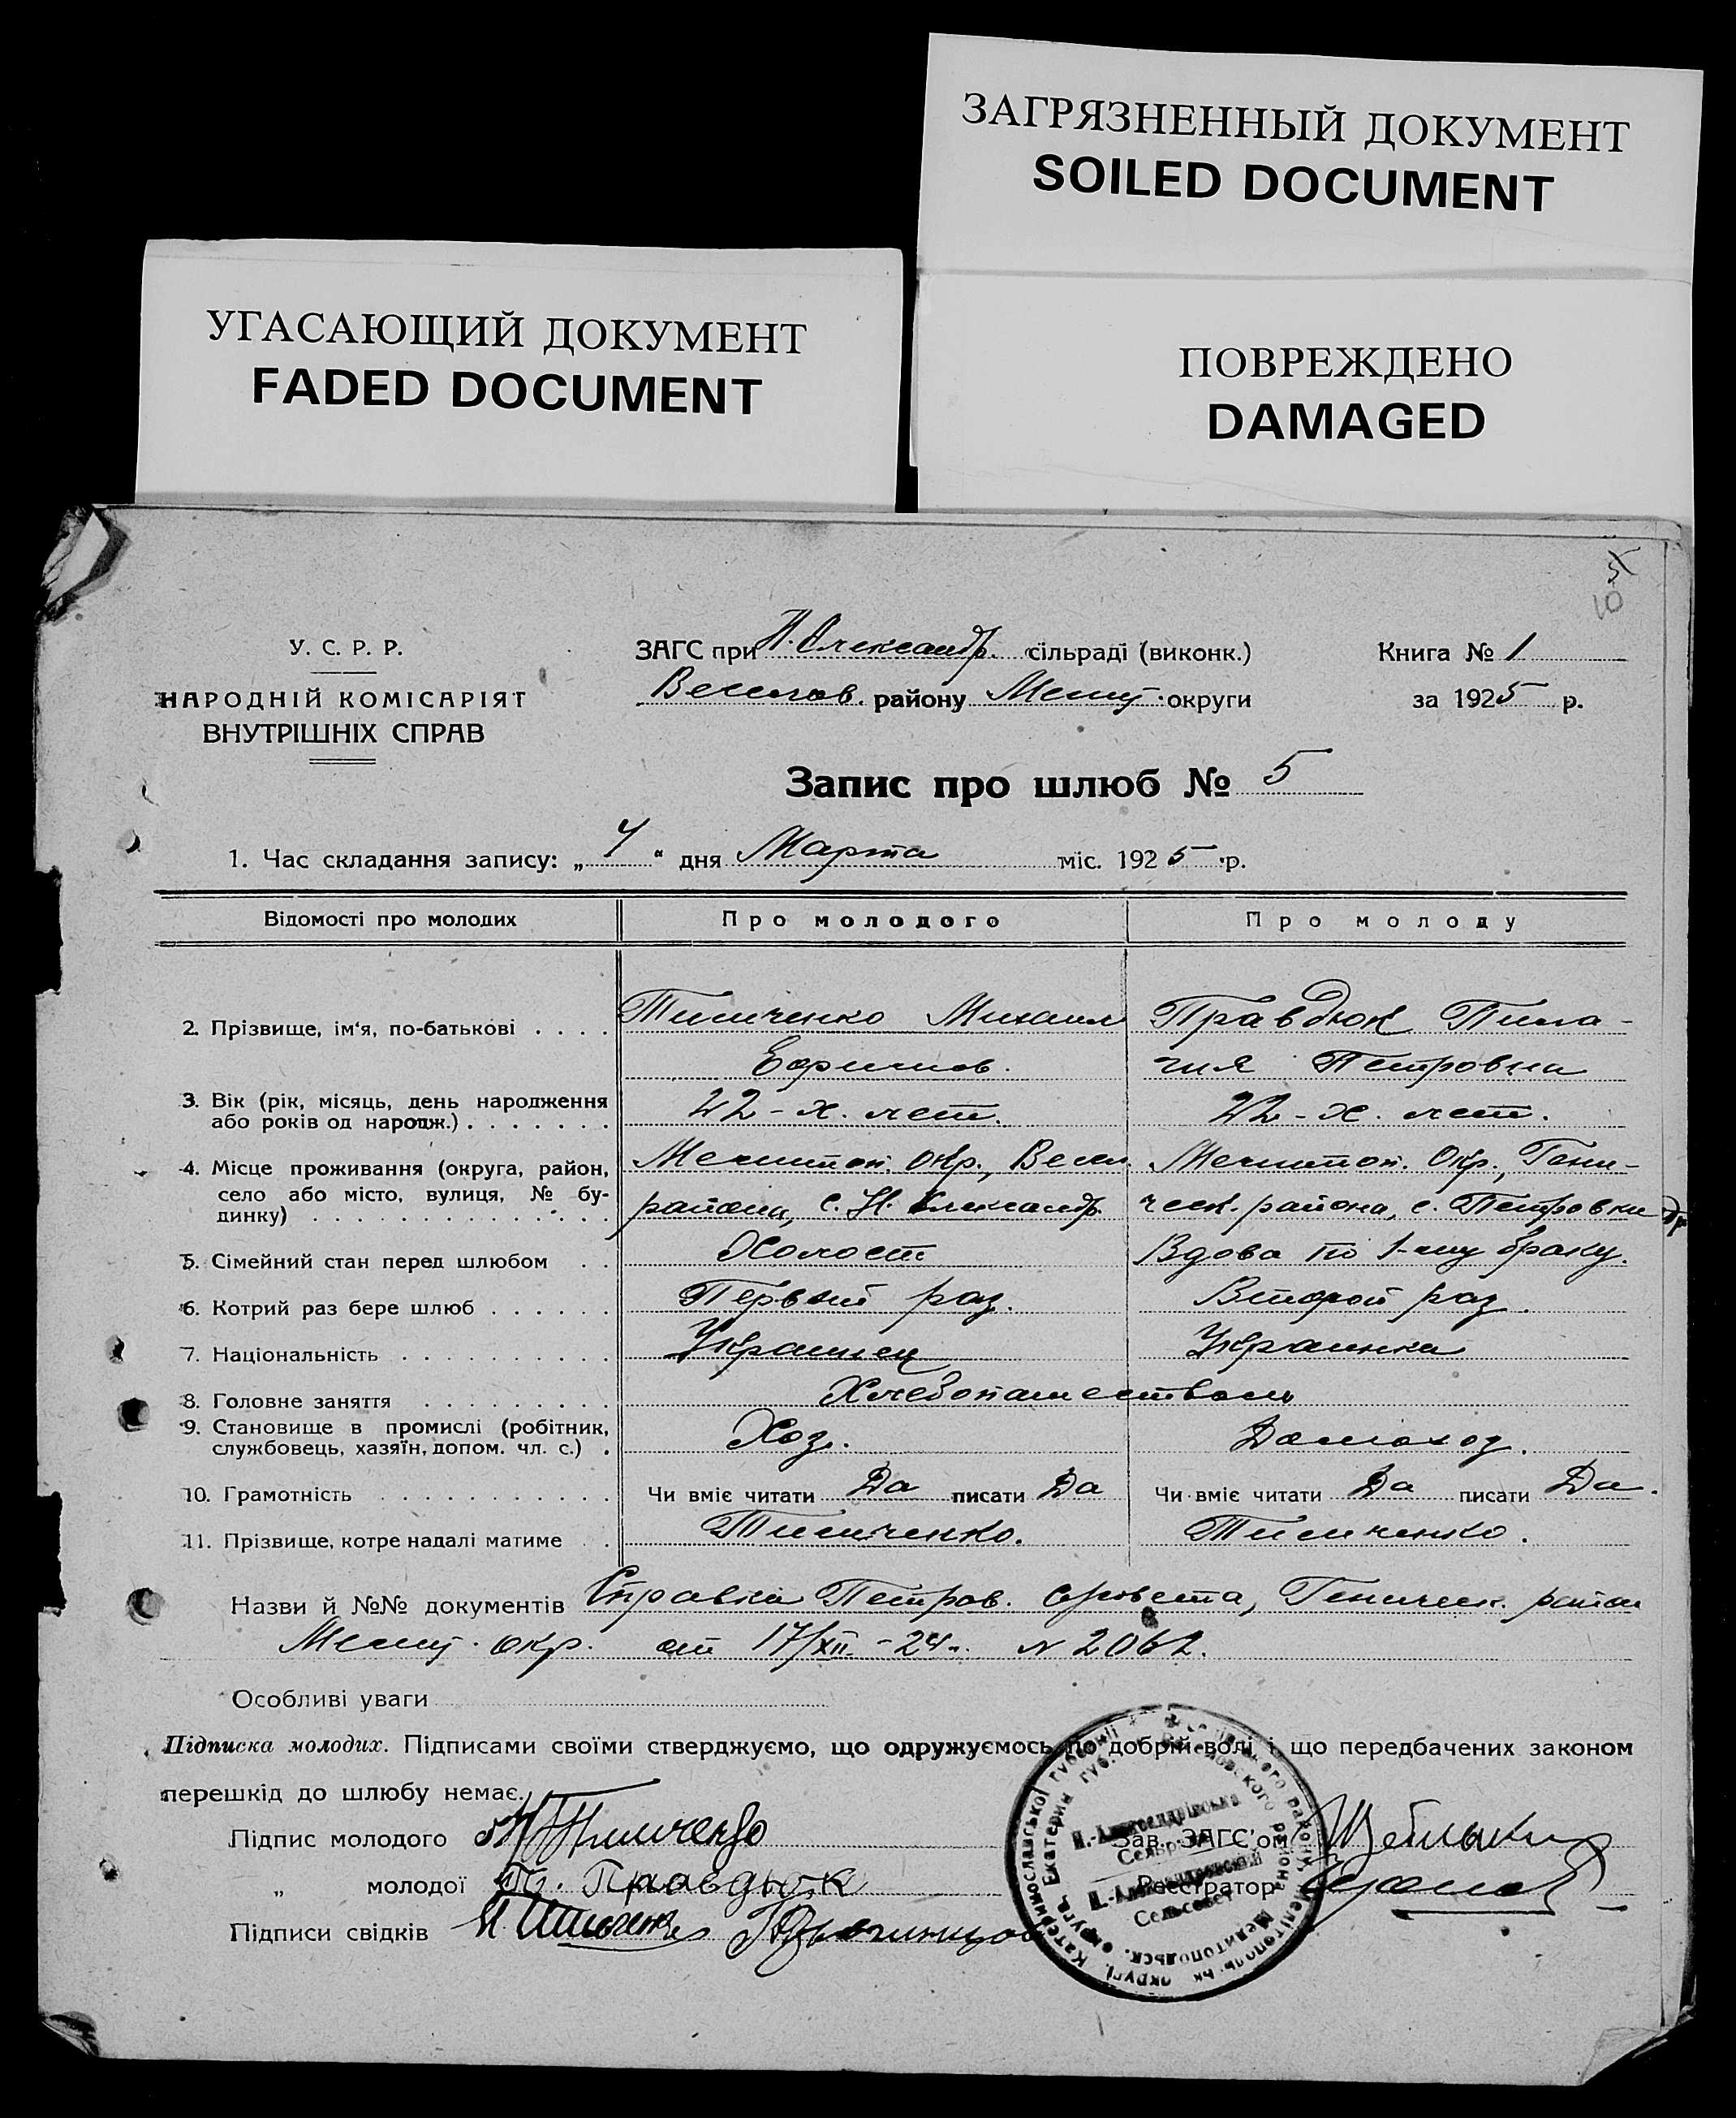 ЗАГРЯЗНЕННЫЙ ДОКУМЕНТ
SOILED DOCUMENT
УГАСАЮЩИЙ ДОКУМЕНТ
FADED DOCUMENT
ПОВРЕЖДЕНО
DAMAGED
У. С. Р. Р.
НАРОДНІЙ КОМІСАРІЯТ
ВНУТРІШНІХ СПРАВ
ЗАГС при Н. Александр. сільраді (виконк.)
Веселов. району Мелит. округи
Книга № 1
за 1925 р.
Запис про шлюб № 5
1. Час складання запису: „ 4 “ дня Марта міс. 1925 р.
Відомості про молодих Про молодого Про молоду
2. Прізвище, ім'я, по-батькові Тимченко Михаил Правдюк Пила-
Ефимов. гия Петровна
3. Вік (рік, місяць, день народження
або років од народж.) 22-х. лет. 22-х. лет.
4. Місце проживання (округа, район, Мелитоп. Окр., Весел. Мелитоп. Окр., Гени-
село або місто, вулиця, № бу-
динку) района, с. Н. Александр. ческ. района, с. Петровки
5. Сімейний стан перед шлюбом Холост Вдова по 1-му браку.
6. Котрий раз бере шлюб Первый раз. Второй раз.
7. Національність Украинец Украинка
8. Головне заняття Хлебопашеством
9. Становище в промислі (робітник,
службовець, хазяїн, допом. чл. с.) Хоз. Домохоз.
10. Грамотність Чи вміє читати Да писати Да Чи вміє читати Да писати Да.
11. Прізвище, котре надалі матиме Тимченко. Тимченко.
Назви й №№ документів Справка Петров. с/совета, Геническ. район
Мелит. окр. от 17/XII-24г. № 2062.
Особливі уваги
Підписка молодих. Підписами своїми стверджуємо, що одружуємось по добрій волі і що передбачених законом
перешкід до шлюбу немає.
Підпис молодого М Тимченко
Зав. ЗАГС'ом
„ молодої П. Правдюк
Реєстратор
Підписи свідків
Н.-Александрівська
Сельрада
Н.-Александровский
Сельсовет